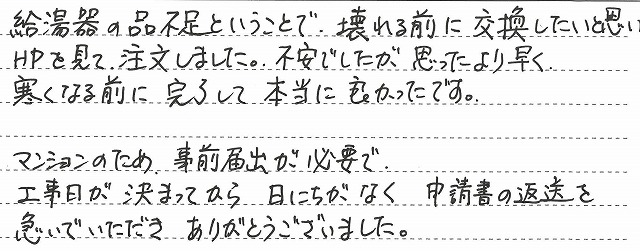 給湯器の品不足ということで、壊れる前に交換したいと思い
HPを見て、注文しました。不安でしたが思ったより早く、
寒くなる前に完了して本当に良かったです。
マンションのため、事前届出が必要で、
工事日が決まってから日にちがなく申請書の返送を
急いでいただきありがとうございました。